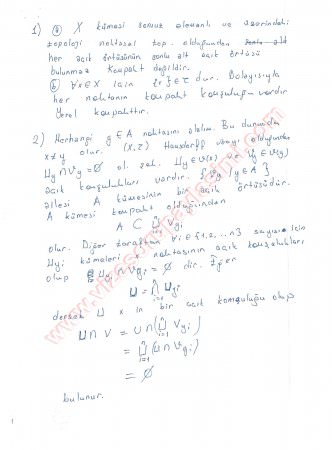 1) a) X kümesi sonsuz elemanlı ve üzerindeki
topoloji noktasal top. olduğundan
her açık örtüsünün sonlu alt açık örtüsü
bulunmaz kompakt değildir.
b) ∀x∈X için {x}∈τ dur. Dolayısıyla
her noktanın kompakt komşuluğu vardır
Yerel kompakttır.
2) Herhangi y∈A noktasını alalım. Bu durumda
x≠y olur. (X,τ) Hausdorff uzayı olduğundan
Uy∩Vy=∅ ol. şek. Uy∈ϑ(x) ve Vy∈ϑ(y)
açık komşulukları vardır. {Vy | y∈A}
ailesi A kümesinin bir açık örtüsüdür.
A kümesi kompakt olduğundan
A ⊂ ⋃ Vyi
olur. Diğer taraftan ∀i∈{1,2,...n} sayısı için
Uyi kümeleri x noktasının açık komşulukları
olup Uyi∩Vyi=∅ dir. Eğer
U = ⋂ Uyi
dersek U x in bir açık komşuluğu olup
U∩V = U∩(⋃ Vyi)
= ⋃ (U∩Vyi)
= ∅
bulunur.